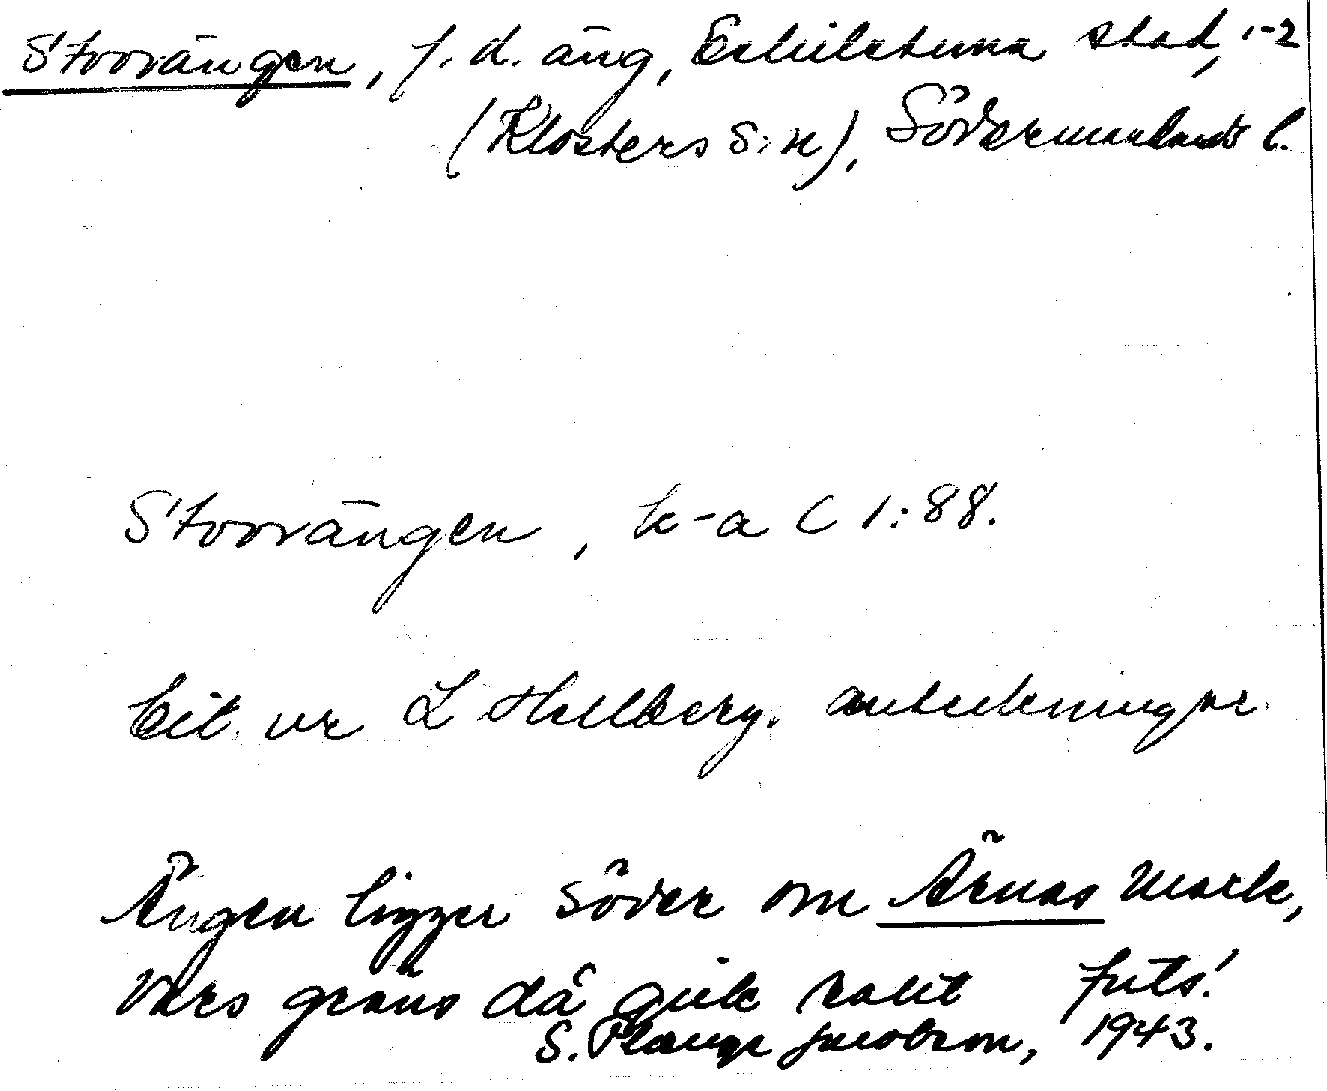 Storrängen, f. d. äng, Eskilstuna stad, 1-2
(Klosters s:n), Södermanlands l.
Storrängen, k-a C 1:88.
Cit. ur L Hellberg. anteckningar.
Ängen ligger söder om Ärnas mark,
vars gräns då gick rakt
S. Plange Jacobson, 1943.